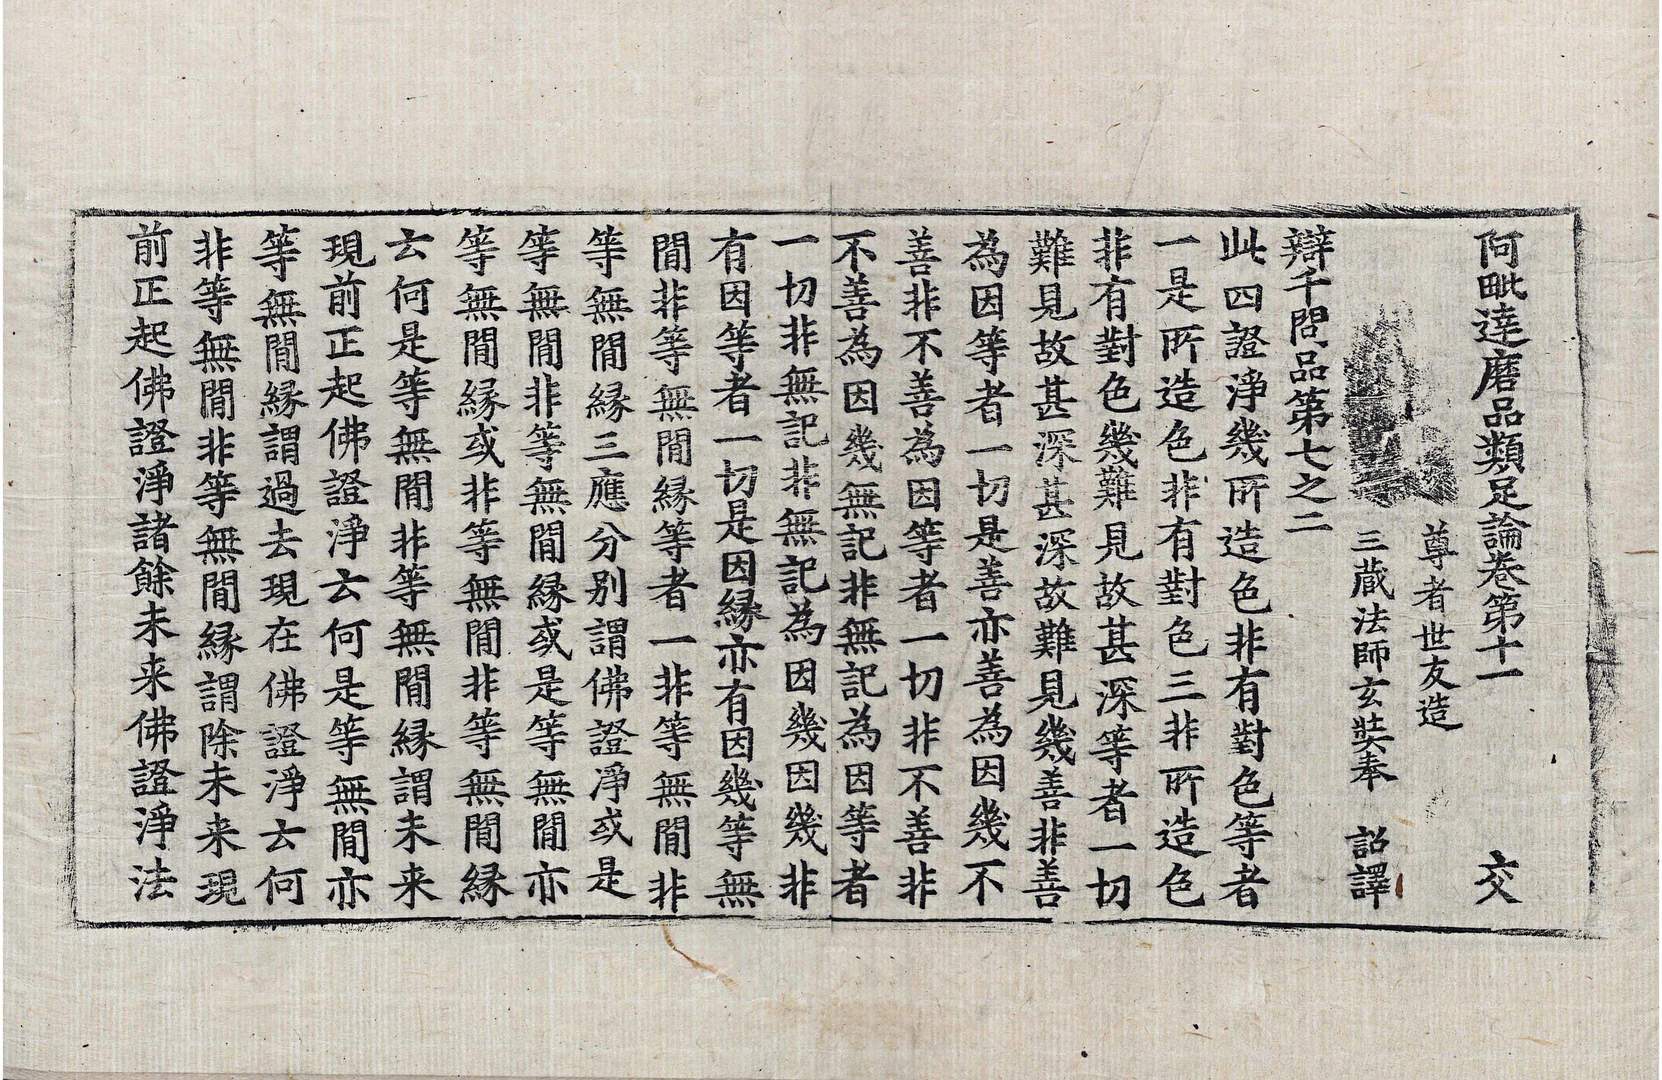 阿毗達磨品類足論卷第十一 交
尊者世友造
三藏法師玄奘奉 詔譯
辯千問品第七之二
此四證淨幾所造色非有對色等者
一是所造色非有對色三非所造色
非有對色幾難見故甚深等者一切
難見故甚深甚深故難見幾善非善
為因等者一切是善亦善為因幾不
善非不善為因等者一切非不善非
不善為因幾無記非無記為因等者
一切非無記非無記為因幾因幾非
有因等者一切是因緣亦有因幾等無
間非等無間緣等者一非等無間非
等無間緣三應分別謂佛證淨或是
等無間非等無間緣或是等無間亦
等無間緣或非等無間非等無間緣
云何是等無間非等無間緣謂未来
現前正起佛證淨云何是等無間亦
等無間緣謂過去現在佛證淨云何
非等無間非等無間緣謂除未来現
前正起佛證淨諸餘未来佛證淨法